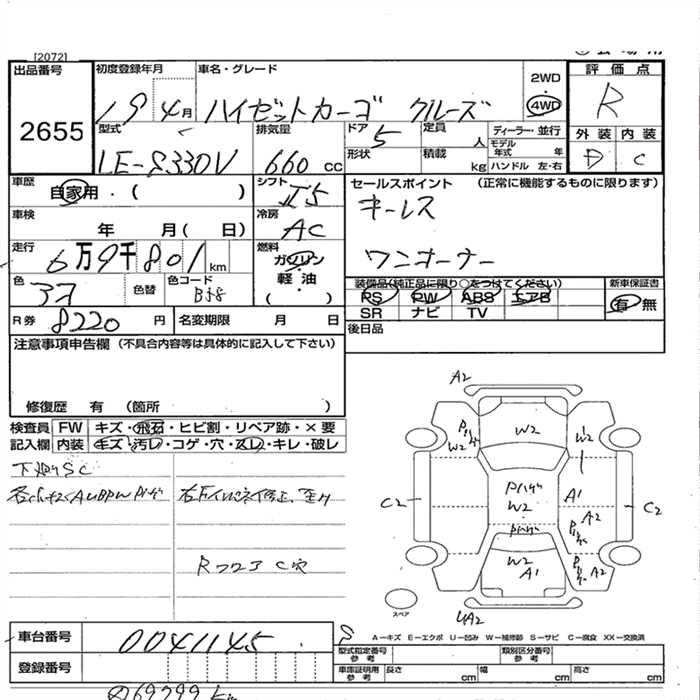 [2072]
出品番号
2655
初度登録年月
19 4月
車名・グレード
ハイゼットカーゴ クルーズ
2WD
4WD
評価点
R
外装 内装
D C
型式
LE-S330V
排気量
660 cc
ドア 5
形状
定員 人
積載 kg
ディーラー・並行
モデル年式 年
ハンドル 左・右
車歴
自家用・( )
シフト
I5
セールスポイント (正常に機能するものに限ります)
キーレス
ワンオーナー
車検
年 月( 日)
冷房
AC
走行
6万9千801km
燃料
ガソリン
軽油
( ・ )
色
色替
色コード
装備品(純正品に限り○をつけてください)
PS PW ABS エアB
SR ナビ TV
新車保証書
有・無
R券 8220 円
名変期限 月 日
後日品
注意事項申告欄(不具合内容等は具体的に記入して下さい)
修復歴 有 (箇所 )
検査員 FW キズ・飛石・ヒビ割・リペア跡・×要
記入欄 内装 キズ・汚レ・コゲ・穴・スレ・キレ・破レ
Rフロア C穴
A2
W2
W2
W2
C2
W2
A1
A2
C2
W2
A1
A2
4A2
スペア
A-キズ E-エクボ U-凹み W-補修跡 S-サビ C-腐食 XX-交換済
車台番号
0041145
登録番号
型式指定番号 参考
類別区分番号 参考
車庫証明用 参考
長さ cm
幅 cm
高さ cm